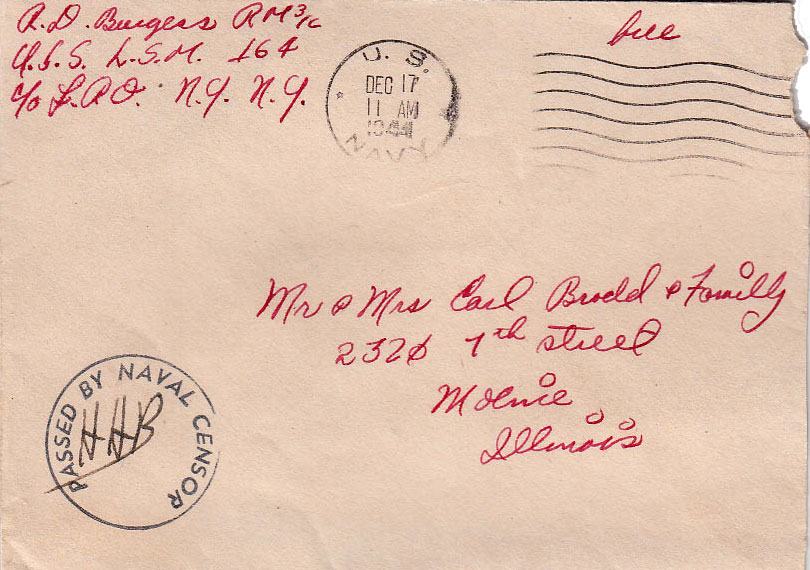 R. D. Burgess RM 3/c
U.S.S. L.S.M. 164
c/o F.P.O. N.Y. N.Y.
U. S.
DEC 17
11 AM
1944
NAVY
free
Mr & Mrs Carl Brodd & Familly
2320 7th street
Moline
Illinois
PASSED BY NAVAL CENSOR
HHB